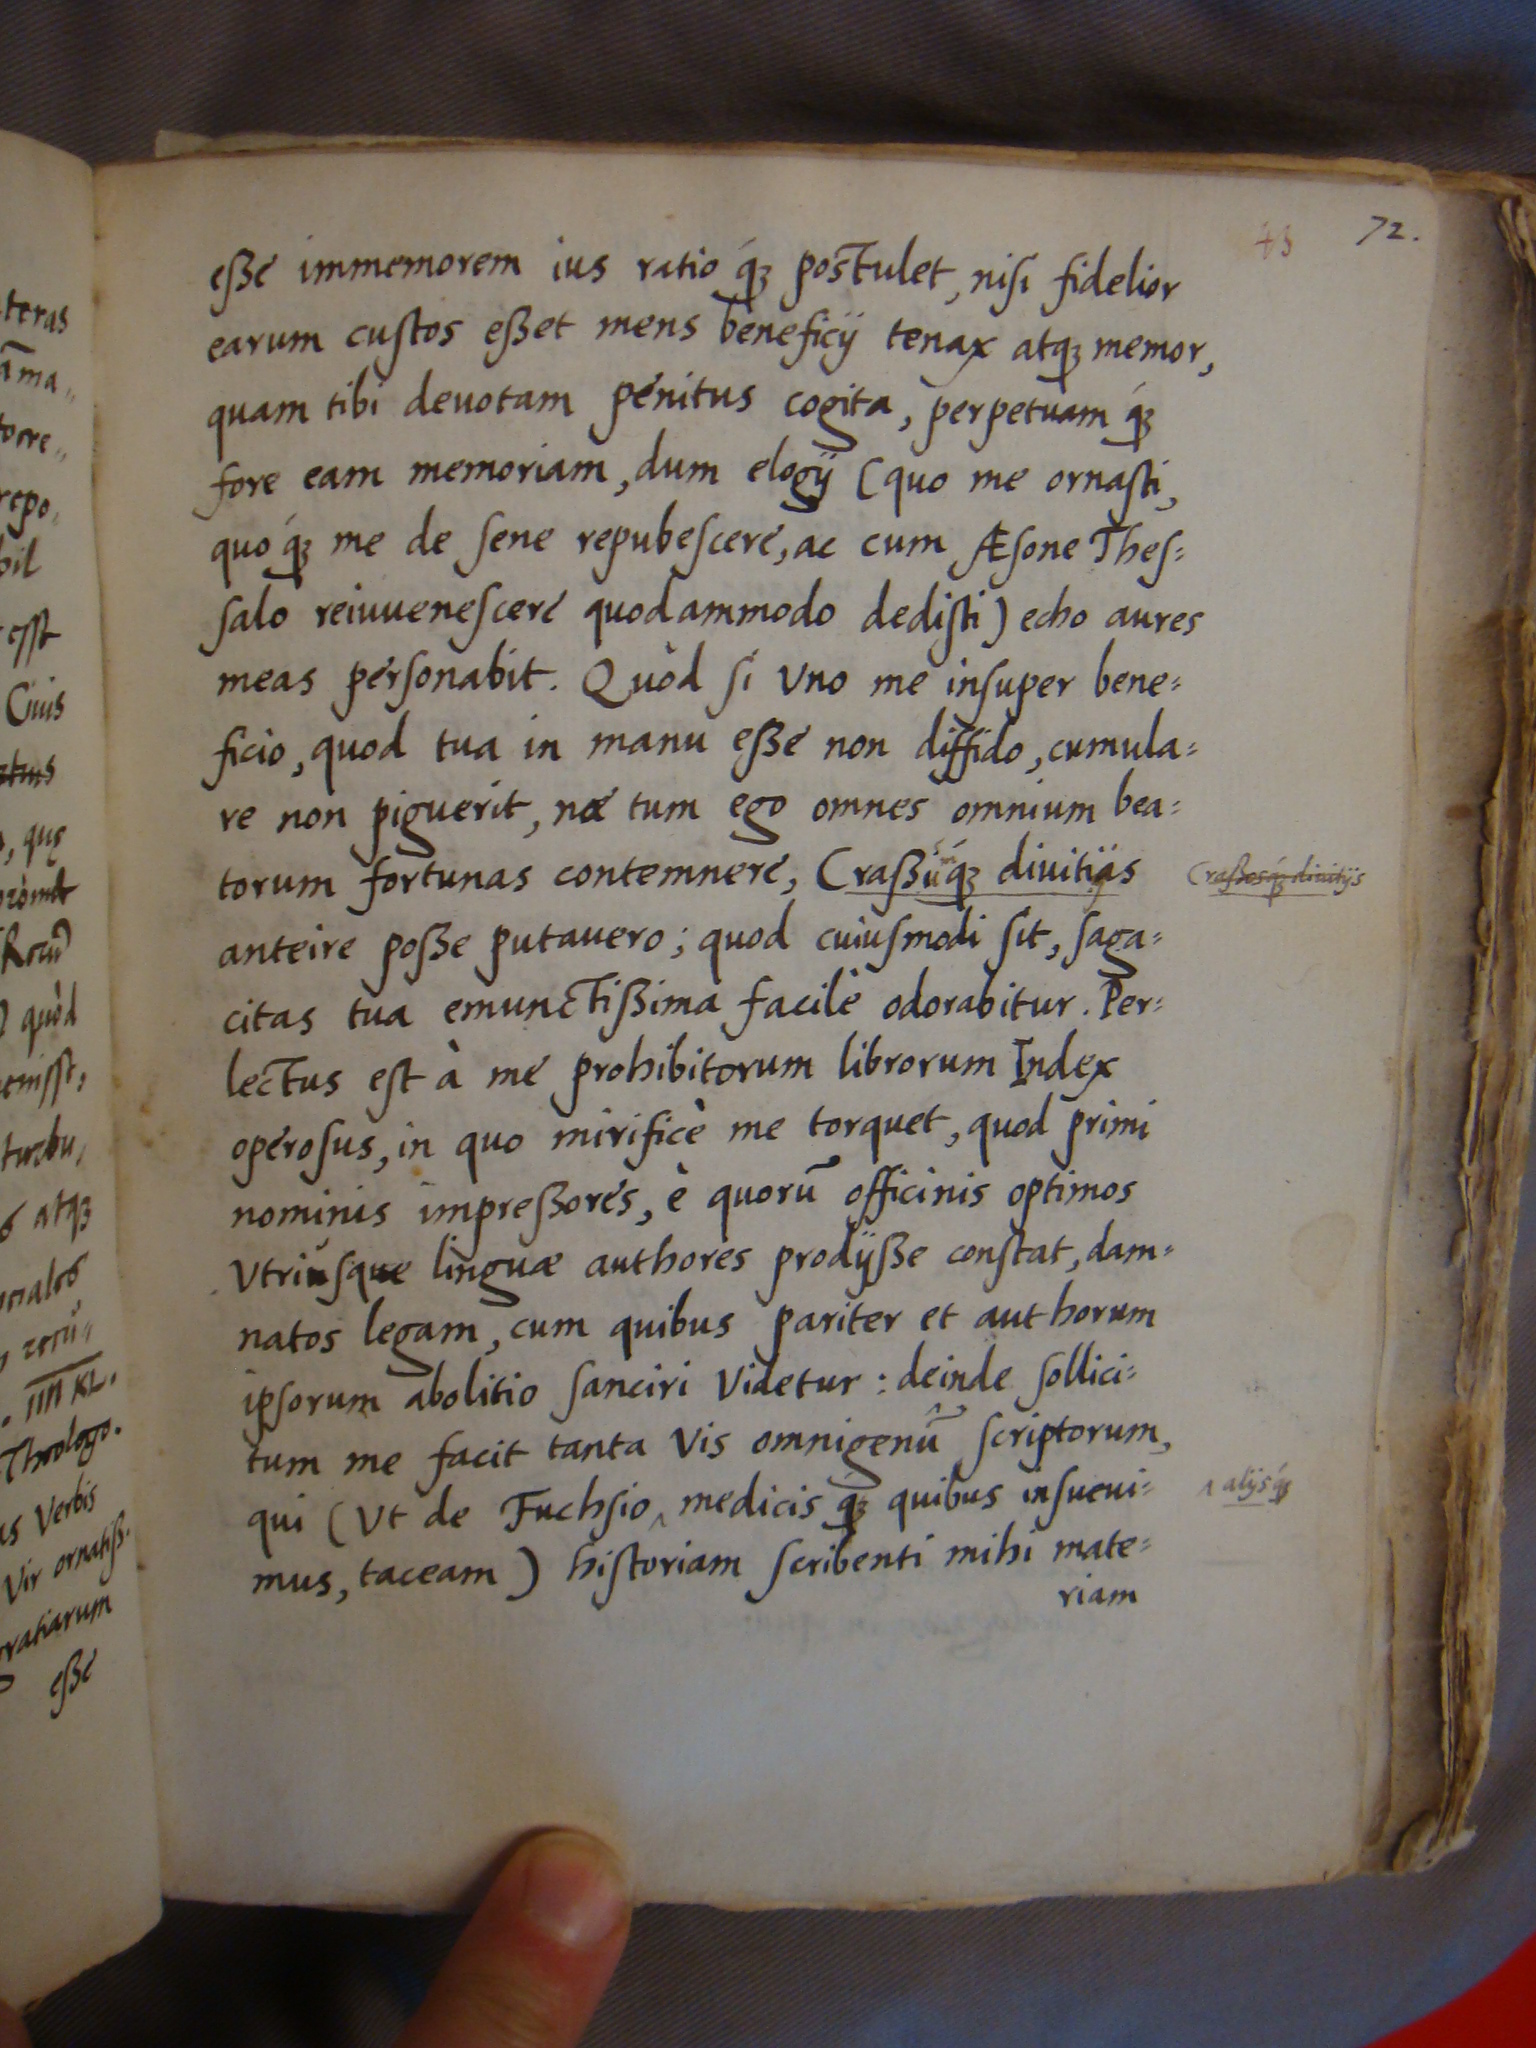 43 72.
esse immemorem ius ratio q́ꝫ postulet, nisi fidelior
earum custos esset mens beneficij tenax atqꝫ memor,
quam tibi deuotam penitus cogita, perpetuam q́ꝫ
fore eam memoriam, dum elogij (quo me ornasti,
quo q́ꝫ me de sene repubescere, ac cum Æsone Thes=
salo reiuuenescere quodammodo dedisti) echo aures
meas personabit. Quòd si vno me insuper bene=
ficio, quod tua in manu esse non diffido, cumula=
re non piguerit, næ tum ego omnes omnium bea=
torum fortunas contemnere, Crassu q́ꝫ diuitijs
Crassosq́ꝫ diuitijs
anteire posse putauero; quod cuiusmodi sit, saga=
citas tua emunctissima facilè odorabitur. Per=
lectus est à me prohibitorum librorum Index
operosus, in quo mirificè me torquet, quod primi
nominis impressores, è quorū officinis optimos
vtriusque linguæ authores prodijsse constat, dam=
natos legam, cum quibus pariter et authorum
ipsorum abolitio sanciri videtur: deinde sollici=
tum me facit tanta vis omnigenū scriptorum,
qui (vt de Fuchsio ‸ medicis q́ꝫ quibus insueui=
‸ alijs q́ꝫ
mus, taceam) historiam scribenti mihi mate=
riam
teras
āma=
repo=
esst
Cuius
quę
quòd
atqꝫ
IIII KL.
Theologo.
Verbis
Vir ornatiss.
gratiarum
esse